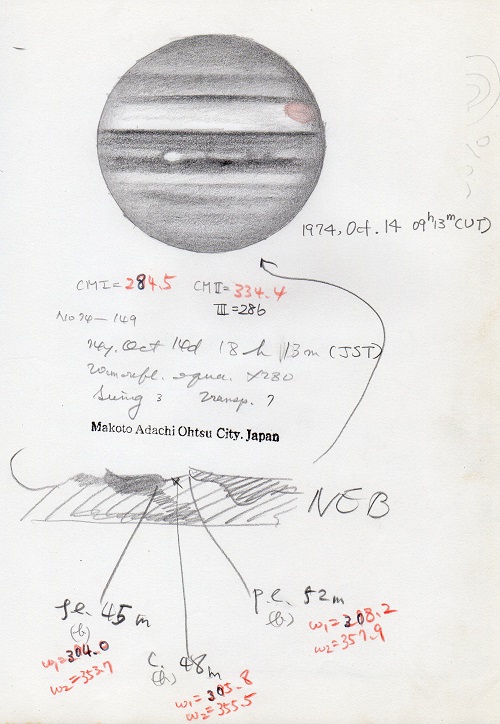 1974, Oct. 14 09h13m (UT)
CM I = 284.5 CM II = 334.4
III = 286
No 74-149
74y. Oct 14d 18h 13m (JST)
20cm refl. equa. ×280
Seeing 3 transp. 7
Makoto Adachi Ohtsu City. Japan
NEB
p.e. 52m
(b)
ω1 = 308.2
ω2 = 357.9
f.e. 45m
(b)
ω1 = 304.0
ω2 = 353.7
c. 48m
(b)
ω1 = 305.8
ω2 = 355.5